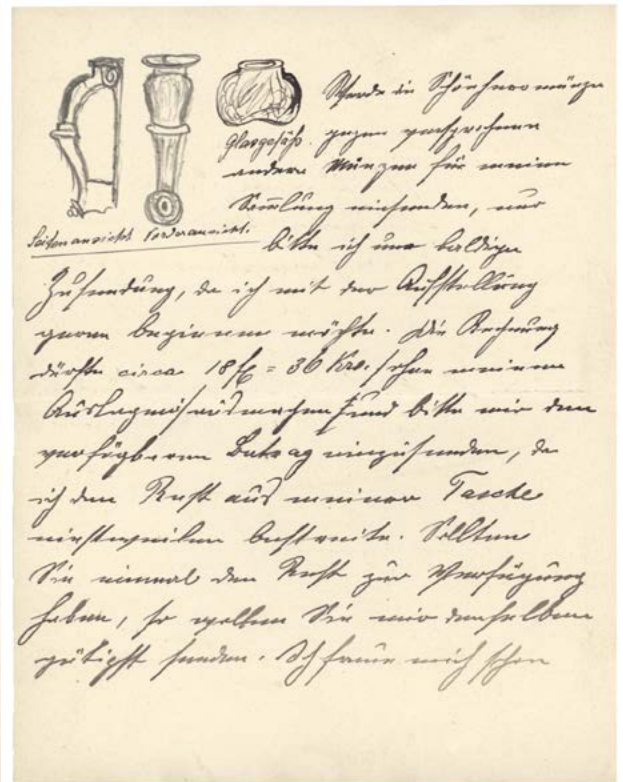 Glasgefäß.
Seitenansicht Vorderansicht.
Werde die Schönherrmünze
gegen versprochene
andere Münzen für meine
Sammlung einsenden, nur
bitte ich um baldige
Zusendung, da ich mit der Aufstellung
gerne beginnen möchte. Die Rechnung
dürfte circa 18 fl = 36 Kro.
Auslagen ausmachen und bitte mir den
verfügbaren Betrag einzusenden, da
ich den Rest aus meiner Tasche
einstweilen bestreite. Sollten
Sie einmal den Rest zur Verfügung
haben, so wollen Sie mir denselben
gütigst senden. Ich freue mich schon